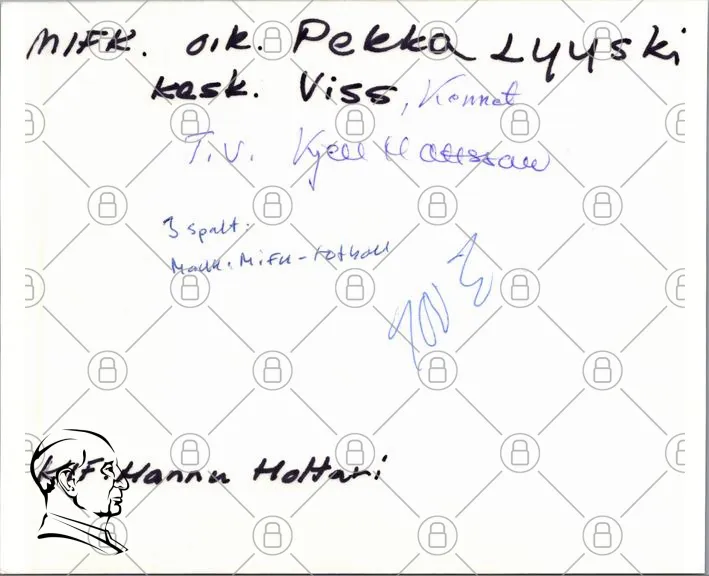 MIFK. oik. Pekka Lyyski
kesk. Viss, Kennet
T.v. Kjell Mattsson
3 spalt:
Mark. MIFK - fotboll
Hannu Holttari